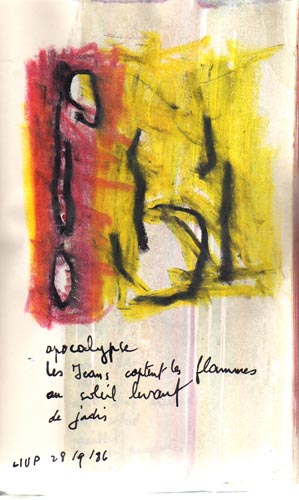 apocalypse
les Jeans captent les flammes
au soleil levant
de jadis
LIUP 29/9/86